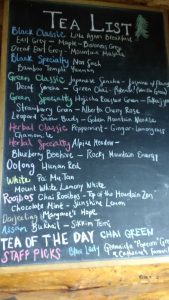 TEA LIST
Black Classic Lake Agnes Breakfast
Earl Grey - Maple - Baroness Grey
Decaf Earl Grey - Mountain
Black Specialty Nan Such
Bamboo Temple Yunnan
Green Classic Japanese Sencha - Jasmine
Decaf Sencha - Green Chai
Green Specialty Hojicha
Strawberry Green - Alberta Clover Rose
Leopard Snow Buds - Golden Mountain
Herbal Classic Peppermint - Ginger-Lemongrass
Chamomile
Herbal Specialty Alpine Meadow -
Blueberry Beehive - Rocky Mountain
Oolong Human Red
White Pai Mu Tan
Mount White Lemony White
Rooibos Chai Rooibos - Top of the Mountain Zen
Chocolate Mint - Sunshine Lemon
Darjeeling Margaret's Hope
Assam Bukhail - Sikkim Temi
TEA OF THE DAY CHAI GREEN
STAFF PICKS Blue Lady